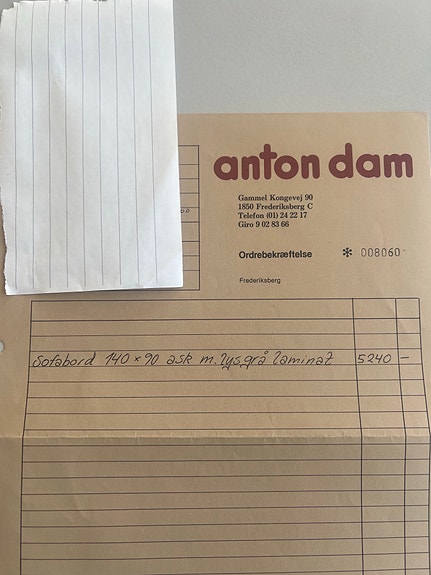 anton dam
Gammel Kongevej 90
1850 Frederiksberg C
Telefon (01) 24 22 17
Giro 9 02 83 66
Ordrebekræftelse * 008060
Frederiksberg
Sofabord 140 x 90 ask m. lysgrå laminat 5240 -